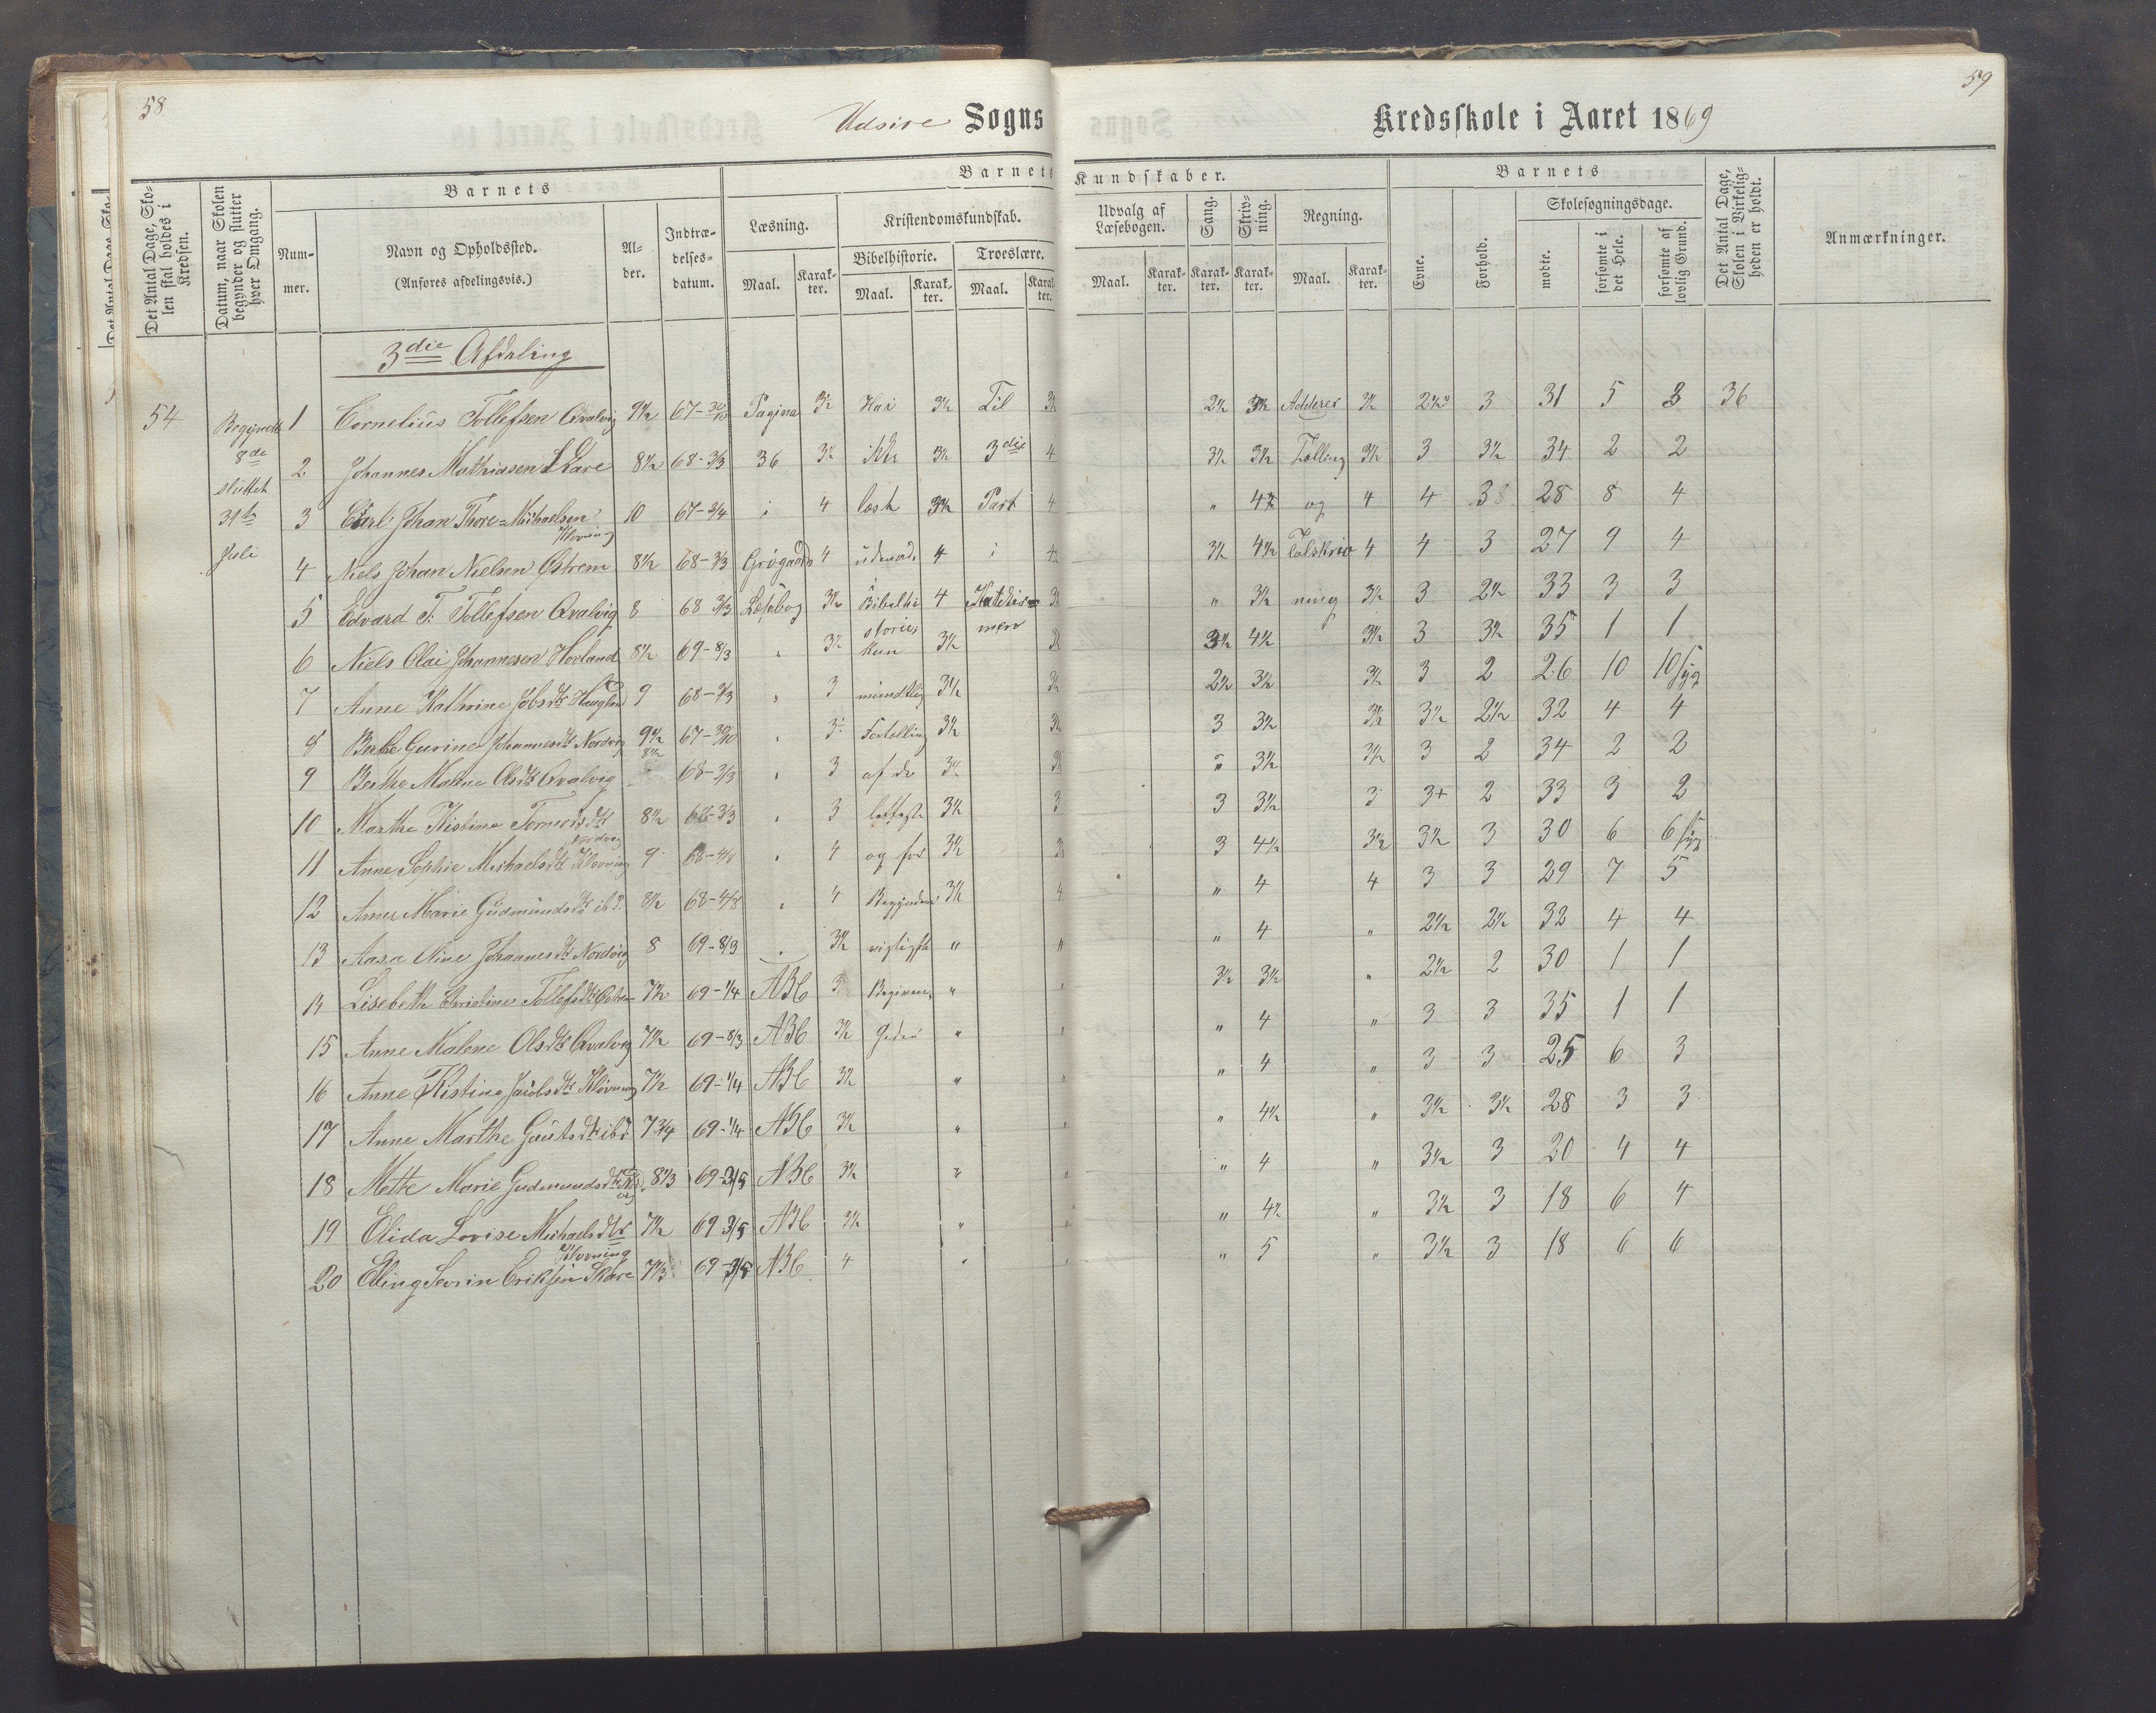 58
Udsire Sogns
Det Antal Dage, Skolen skal holdes i Kredsen.
Datum, naar Skolen begynder og slutter hver Omgang.
Barnets
Num-
mer.
Navn og Opholdssted.
(Anføres afdelingsvis.)
Al-
der.
Indtræ-
delses-
datum.
Barnets
Læsning.
Kristendomskundskab.
Bibelhistorie.
Troeslære.
Maal.
Karak-
ter.
Maal.
Karak-
ter.
Maal.
Karak-
ter.
3die Afdeling
54 Begyndte 8de sluttet 31te Juli
1 Cornelius Tollefsen Qvalvig 9½ 67-30/10 Pagina 3½ Har 3½ Til
2 Johannes Mathiasen Skare 8½ 68-3/3 36 3½ ikke 3½ 3die 4
3 Carl Johan Thore=Michaelsen Klovning 10 67-2/4 i 4 læst 3½ Part 4
4 Niels Johan Nielsen Østrem 8½ 68-3/3 Grøgaards 4 udenad 4 i
5 Edvard T. Tollefsen Qvalvig 8 68 3/3 Læsebog 3½ Bibelhi 4 Katekis=
6 Niels Olai Johannesen Hovland 8½ 69-8/3 " 3½ storie, kun 3½ men
7 Anne Kathrine Jobsdtr Haugland 9 68-3/3 " 3 mundtlig 3½
8 Berthe Gurine Johannesdtr Nordvig 9½ 67-30/10 " 3 Fortelling 3½
9 Berthe Malene Olsdtr Qvalvig 8½ 68-3/3 " 3 af de 3½
10 Marthe Kistine Tormodsdtr Nordvig 8½ 68-3/3 " 3 letteste 3½ 3
11 Anne Sophie Michaelsdtr Klovning 9 68-4/8 " 4 og for 3½
12 Anne Marie Gudmundsdtr ibd. 8½ 68-4/8 " 4 Begyndere 3½ 4
13 Aasa Eline Johannesdtr Nordvig 8 69-8/3 " 3½ vigtigste " "
14 Lisebeth Christine Tollefsdtr 7½ 69-1/4 ABC 3 Begiven- "
15 Anne Malene Olsdtr Qvalvig 7½ 69-8/3 ABC 3½ heder "
16 Anne Kistine Jacobsdtr Klovning 7½ 69-1/4 ABC 3½ "
17 Anne Marthe Gautsdtr ibd 7¾ 69-1/4 ABC 3½ "
18 Mette Marie Gudmundsdtr 8⅓ 69-3/5 ABC 3½ "
19 Elida Lovise Michaelsdtr Klovning 7½ 69 3/5 ABC 3½ "
20 Elling Sevrin Eriksen Skare 7⅓ 69-3/5 ABC 4 "
59
Kredsskole i Aaret 1869
Kundskaber.
Udvalg af
Læsebogen.
Maal.
Karak-
ter.
Sang.
Karak-
ter.
Skriv-
ning.
Karak-
ter.
Regning.
Maal.
Karak-
ter.
Barnets
Evne.
Forhold.
Skolesøgningsdage.
mødte.
forsømte i det Hele.
forsømte af lovlig Grund.
Det Antal Dage, Skolen i Virkeligheden er holdt.
Anmærkninger.
2½ 3½ Adderer 3½ 2½ 3 31 5 3 36
3½ 3½ Tælling 3½ 3 3½ 34 2 2
" 4½ og 4 4 3 28 8 4
3½ 4½ Talskriv 4 4 3 27 9 4
" 3½ ning 3½ 3 2½ 33 3 3
3½ 4½ 3½ 3 3½ 35 1 1
2½ 3½ 3½ 3 2 26 10 10 syg
3 3½ 3½ 3½ 2½ 32 4 4
" 3½ 3½ 3 2 34 2 2
3 3½ 3 3+ 2 33 3 2
3 4½ 3½ 3½ 3 30 6 6 syg
" 4 4 3 3 29 7 5
" 4 " 2½ 2½ 32 4 4
3½ 3½ " 2½ 2 30 1 1
" 4 " 3 3 35 1 1
" 4 " 3 3 25 6 3
" 4½ " 3½ 3½ 28 3 3
" 4 " 3½ 3 20 4 4
" 4½ " 3½ 3 18 6 4
" 5 " 3½ 3 18 6 6